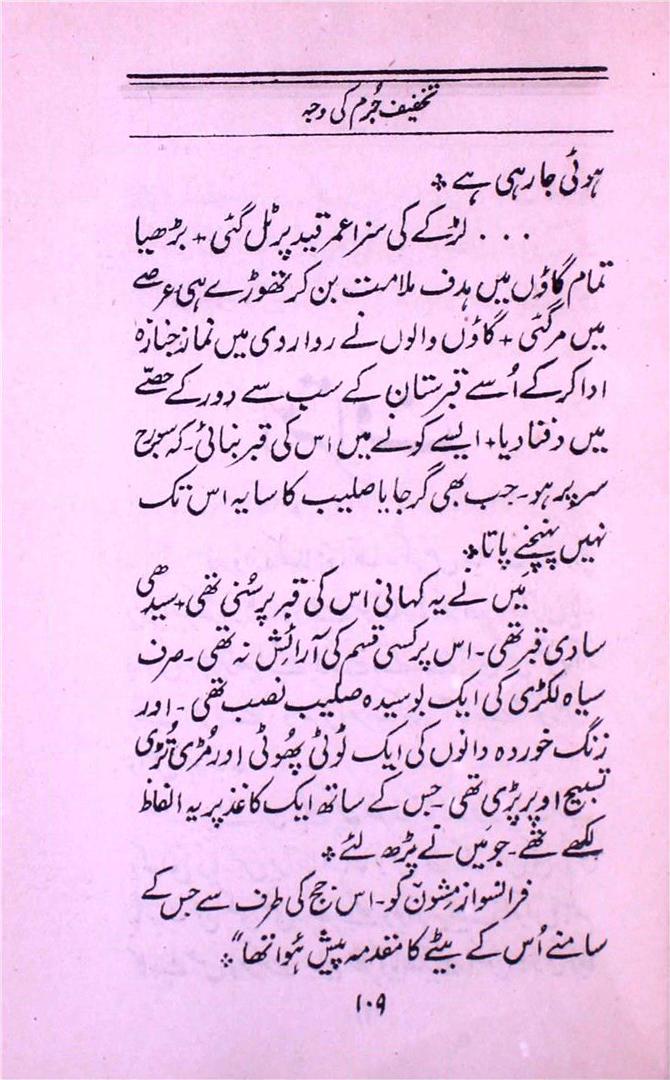 تخفیف جُرم کی وجہ
ہوئی جا رہی ہے ٭
... لڑکے کی سزا عمر قید پر ٹل گئی + بڑھیا
تمام گاؤں میں ہدف ملامت بن کر تھوڑے ہی عرصے
میں مر گئی + گاؤں والوں نے رواروی میں نماز جنازہ
ادا کر کے اُسے قبرستان کے سب سے دور کے حصّے
میں دفنا دیا + ایسے کونے میں اس کی قبر بنائی۔ کہ سورج
سر پر ہو۔ جب بھی گرجا یا صلیب کا سایہ اس تک
نہیں پہنچنے پاتا ٭
میں نے یہ کہانی اس کی قبر پر سُنی تھی + سیدھی
سادی قبر تھی۔ اس پر کسی قسم کی آرائش نہ تھی۔ صرف
سیاہ لکڑی کی ایک بوسیدہ صلیب نصب تھی۔ اور
زنگ خوردہ دانوں کی ایک ٹوٹی پھوٹی اور مُڑی تُڑی
تسبیح اوپر پڑی تھی۔ جس کے ساتھ ایک کاغذ پر یہ الفاظ
لکھے تھے۔ جو میں نے پڑھ لئے ٭
فرانسواز مِشون کو۔ اس جج کی طرف سے جس کے
سامنے اُس کے بیٹے کا مقدمہ پیش ہُوا تھا" ٭
۱۰۹